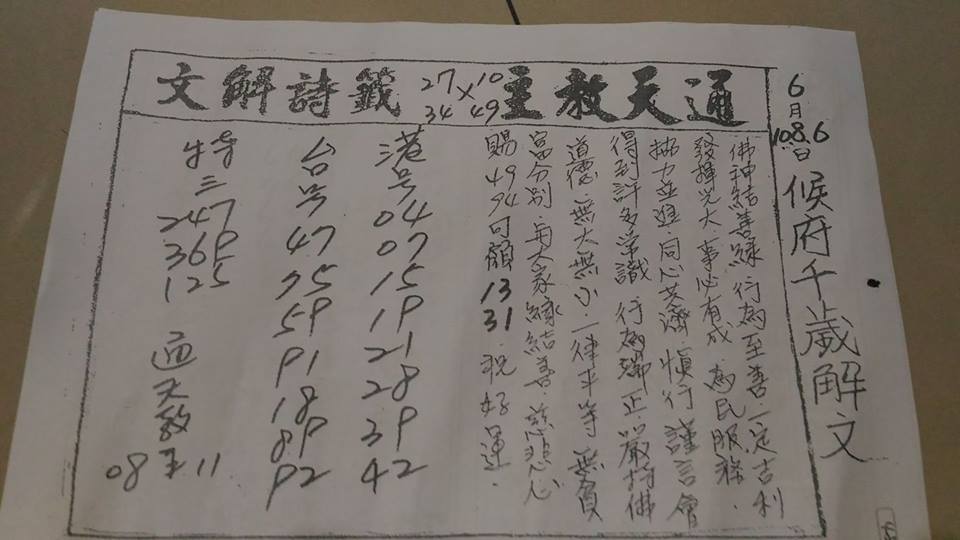 通天教主 27 × 10 34 49 籤詩解文
6月 108.6日 候府千歲解文
佛神結善緣.行為至善.一定吉利
發揮光大.事必有成.為民服務.
協力並進 同心共濟.慎行謹言會
得到許多常識 行為端正.嚴持佛
道德.無大無小.一律平等 無貧
富分別.與大家緣結善.慈悲心
賜 49 94 可顧 13 31.祝好運.
港号 04 07 15 19 21 28 39 42
台号 47 75 59 91 18 89 92
特三 247 369 125 通天教主 08 11